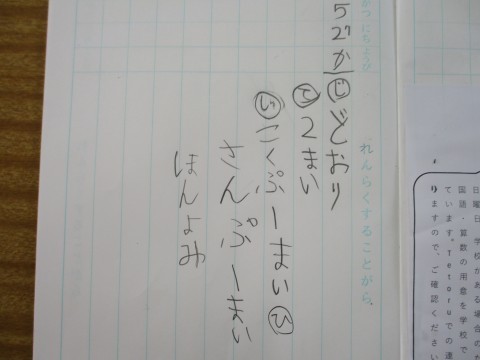 日曜日、学校がある場合の
国語・算数の用意を学校で
ています。Tetoruでの連
りますので、ご確認ください
れんらくすることがら。
5 27 か じ どおり
て 2まい
し こくぷ一まい ひ
さんぷ一まい
ほんよみ